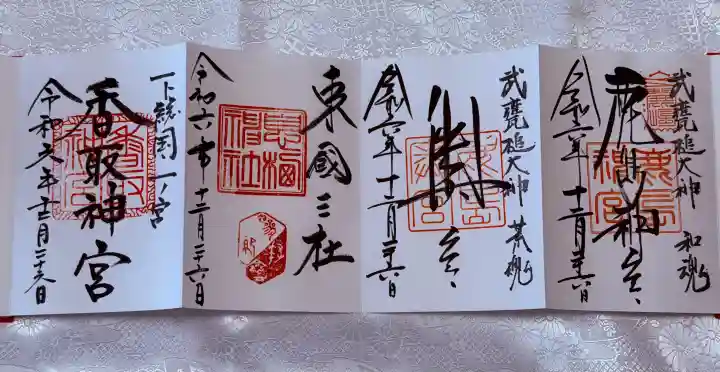 武甕槌大神 和魂
鹿島神宮
令和六年十二月二十六日
武甕槌大神 荒魂
令和六年十二月二十六日
東國三社
息栖神社
令和六年十二月二十六日
下総国一ノ宮
香取神宮
令和六年十二月二十六日